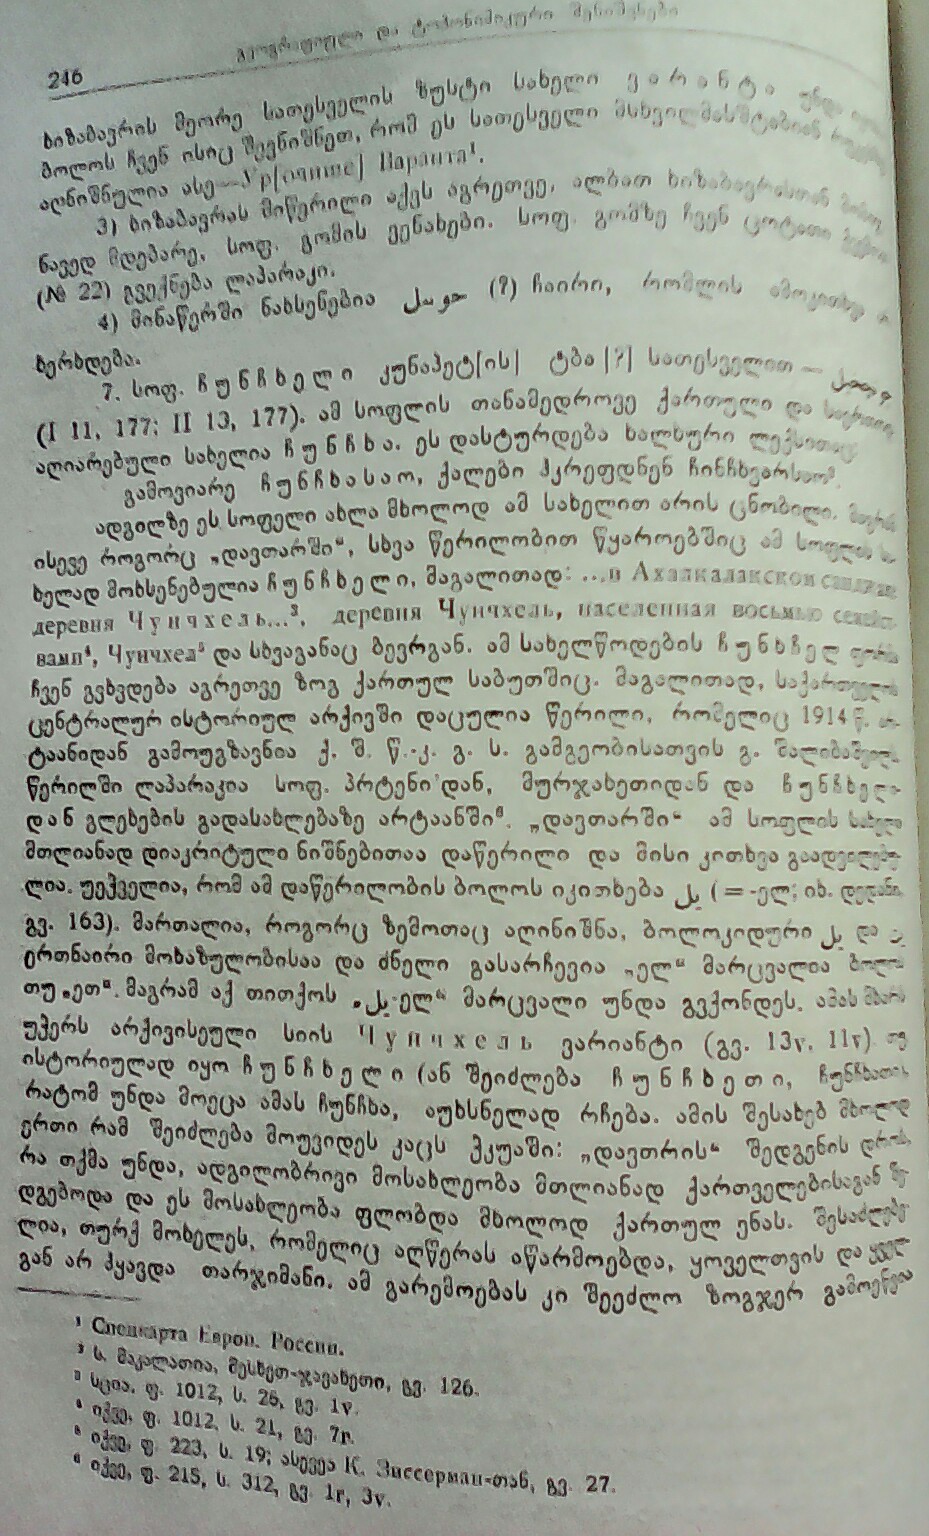 246 გეოგრაფიული და ტოპონიმიკური შენიშვნები
ხიზაბავრის მეორე სათესველის ზუსტი სახელი ვ ა რ ა ნ ტ ა უნდა
ბოლოს ჩვენ ისიც შევნიშნეთ, რომ ეს სათესველი მსხვილმასშტაბიან
აღნიშნულია ასე—Ур[очище] Варанта¹.
3) ხიზაბავრას მიწერილი აქვს აგრეთვე, ალბათ ხიზაბავრასთან
ნავედ მდებარე, სოფ. გომის ვენახები. სოფ. გომზე ჩვენ ცოტათი
(№ 22) გვექნება ლაპარაკი.
4) მინაწერში ნახსენებია (?) ჩაირი, რომლის ამოკითხვა
ხერხდება.
7. სოფ. ჩ უ ნ ჩ ხ ე ლ ი კუნაპეტ[ის] ტბა [?] სათესველით —
(I 11, 177; II 13, 177). ამ სოფლის თანამედროვე ქართული და
აღიარებული სახელია ჩ უ ნ ჩ ხ ა. ეს დასტურდება ხალხური ლექსითაც
გამოვიარე ჩ უ ნ ჩ ხ ა ს ა ო, ქალები ჰკრეფდნენ ჩინჩხვარსაო².
ადგილზე ეს სოფელი ახლა მხოლოდ ამ სახელით არის ცნობილი.
ისევე როგორც „დავთარში“, სხვა წერილობით წყაროებშიც ამ სოფლის
ხელად მოხსენებულია ჩ უ ნ ჩ ხ ე ლ ი, მაგალითად: ...в Ахалкалакском
деревня Ч у н ч х е л ь...³, деревня Чунчхель, населенная восьмью семейст-
вами⁴, Чунчхел⁵ და სხვაგანაც ბევრგან. ამ სახელწოდების ჩ უ ნ ხ ჩ ე ლ ფორმა
ჩვენ გვხვდება აგრეთვე ზოგ ქართულ საბუთშიც. მაგალითად, საქართველოს
ცენტრალურ ისტორიულ არქივში დაცულია წერილი, რომელიც 1914 წ. არ-
ტაანიდან გამოუგზავნია ქ. შ. წ.-კ. გ. ს. გამგეობისათვის გ. შალიბაშვილს.
წერილში ლაპარაკია სოფ. პრტენი’დან, მურჯახეთიდან და ჩ უ ნ ჩ ხ ე ლი-
დ ა ნ გლეხების გადასახლებაზე არტაანში⁶. „დავთარში“ ამ სოფლის სახელი
მთლიანად დიაკრიტული ნიშნებითაა დაწერილი და მისი კითხვა გაადვილებუ-
ლია. უეჭველია, რომ ამ დაწერილობის ბოლოს იკითხება يل (= -ელ; იხ. დედანი,
გვ. 163). მართალია, როგორც ზემოთაც აღინიშნა, ბოლოკიდური ل და ت
ერთნაირი მოხაზულობისაა და ძნელი გასარჩევია „ელ“ მარცვალია ბოლოს
თუ „ეთ“. მაგრამ აქ თითქოს „يل-ელ“ მარცვალი უნდა გვქონდეს. ამას მხარს
უჭერს არქივისეული სიის Ч у н ч х е л ь ვარიანტი (გვ. 13v, 11v) თუ
ისტორიულად იყო ჩ უ ნ ჩ ხ ე ლ ი (ან შეიძლება ჩ უ ნ ჩ ხ ე თ ი,
რატომ უნდა მოეცა ამას ჩუნჩხა, აუხსნელად რჩება. ამის შესახებ მხოლოდ
ერთი რამ შეიძლება მოუვიდეს კაცს ჭკუაში: „დავთრის“ შედგენის დროს,
რა თქმა უნდა, ადგილობრივი მოსახლეობა მთლიანად ქართველებისაგან შე-
დგებოდა და ეს მოსახლეობა ფლობდა მხოლოდ ქართულ ენას. შესაძლებე-
ლია, თურქ მოხელეს, რომელიც აღწერას აწარმოებდა, ყოველთვის და ყველ-
გან არ ჰყავდა თარჯიმანი. ამ გარემოებას კი შეეძლო ზოგჯერ გამოეწვია
¹ Спецкарта Европ. России.
² ს. მაკალათია, მესხეთ-ჯავახეთი, გვ. 126.
³ სცია. ფ. 1012, ს. 26, გვ. 1v.
⁴ იქვე, ფ. 1012, ს. 21, გვ. 7r.
⁵ იქვე, ფ. 223, ს. 19; ასევეა К. Зиссерман-თან, გვ. 27.
⁶ იქვე, ფ. 215, ს. 312, გვ. 1r, 3v.